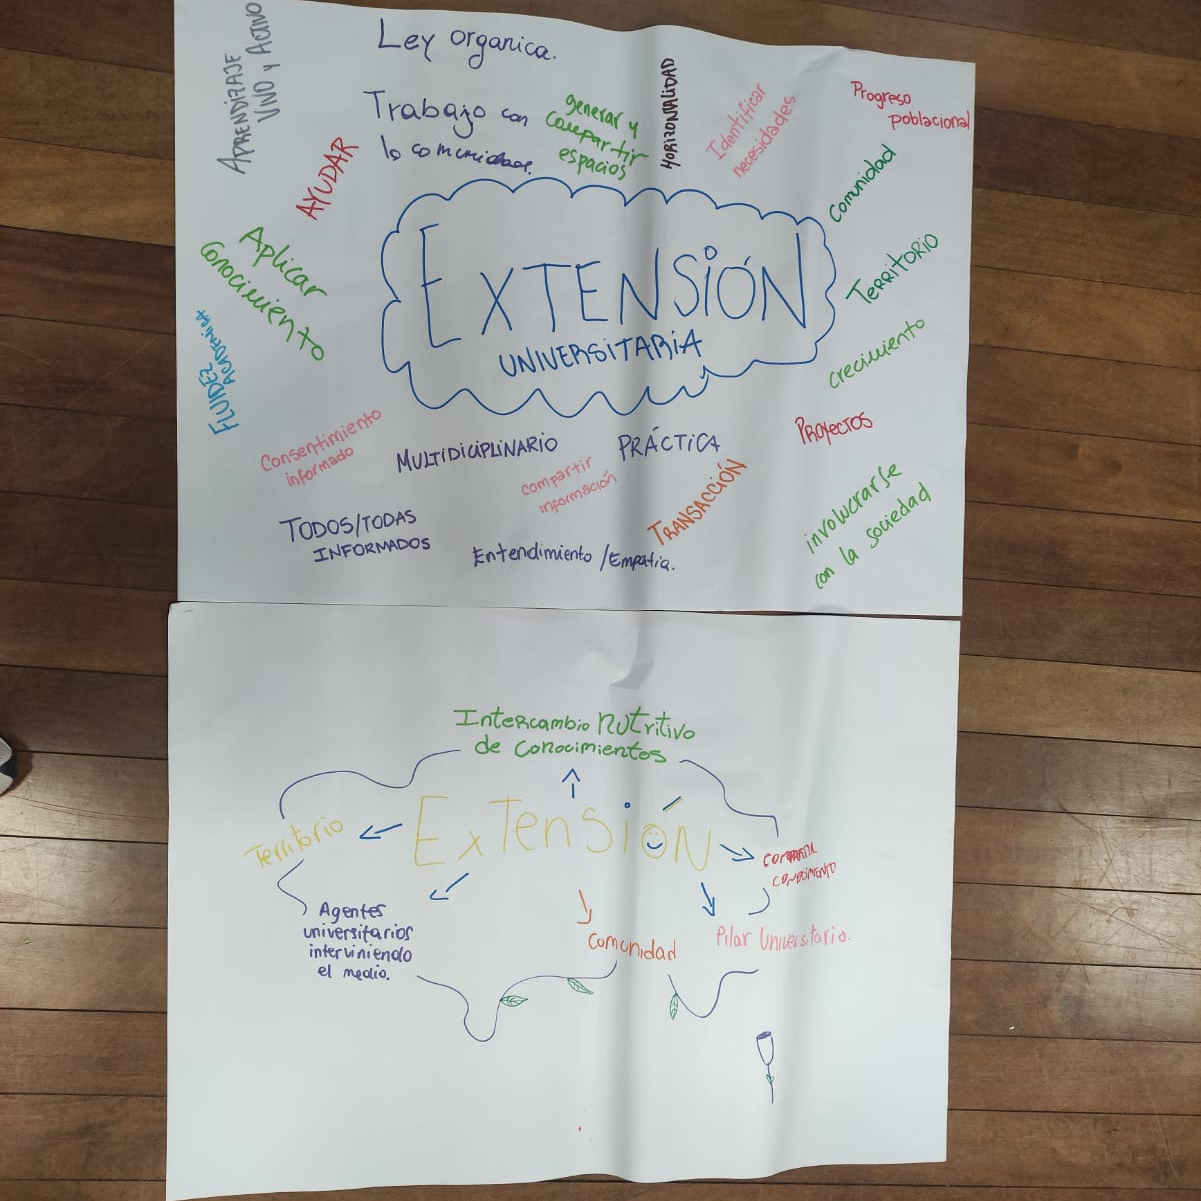 APRENDIZAJE
VIVO y ACTIVO
Ley organica.
Trabajo con
la comunidad.
generar y
compartir
espacios
HORIZONALIDAD
Identificar
necesidades
Progreso
poblacional
AYUDAR
Comunidad
Aplicar
conocimiento
EXTENSIÓN
UNIVERSITARIA
TERRITORIO
FLUIDEZ
ACADEMICA
crecimiento
Consentimiento
informado
MULTIDICIPLINARIO
PRÁCTICA
PROYECTOS
compartir
información
TRANSACCIÓN
involucrarse
con la sociedad
TODOS/TODAS
INFORMADOS
Entendimiento /Empatia.
Intercambio nutritivo
de conocimientos
Territorio
EXTENSIÓN
COMPARTIR
CONOCIMIENTO
Agentes
universitarios
interviniendo
el medio.
Comunidad
Pilar Universitario.